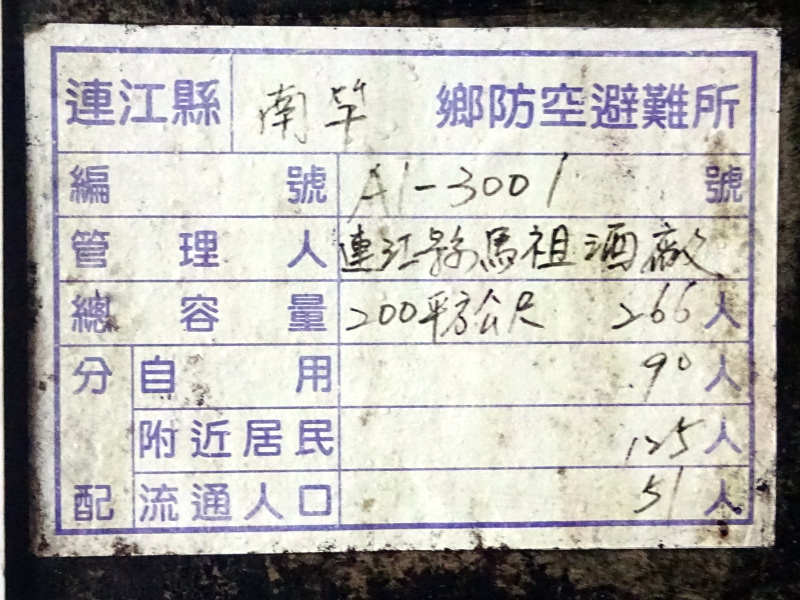 連江縣 南竿 鄉防空避難所
編號 A1-3001 號
管理人 連江縣馬祖酒廠
總容量 200平方公尺 266人
分配 自用 90人
附近居民 125人
流通人口 51人